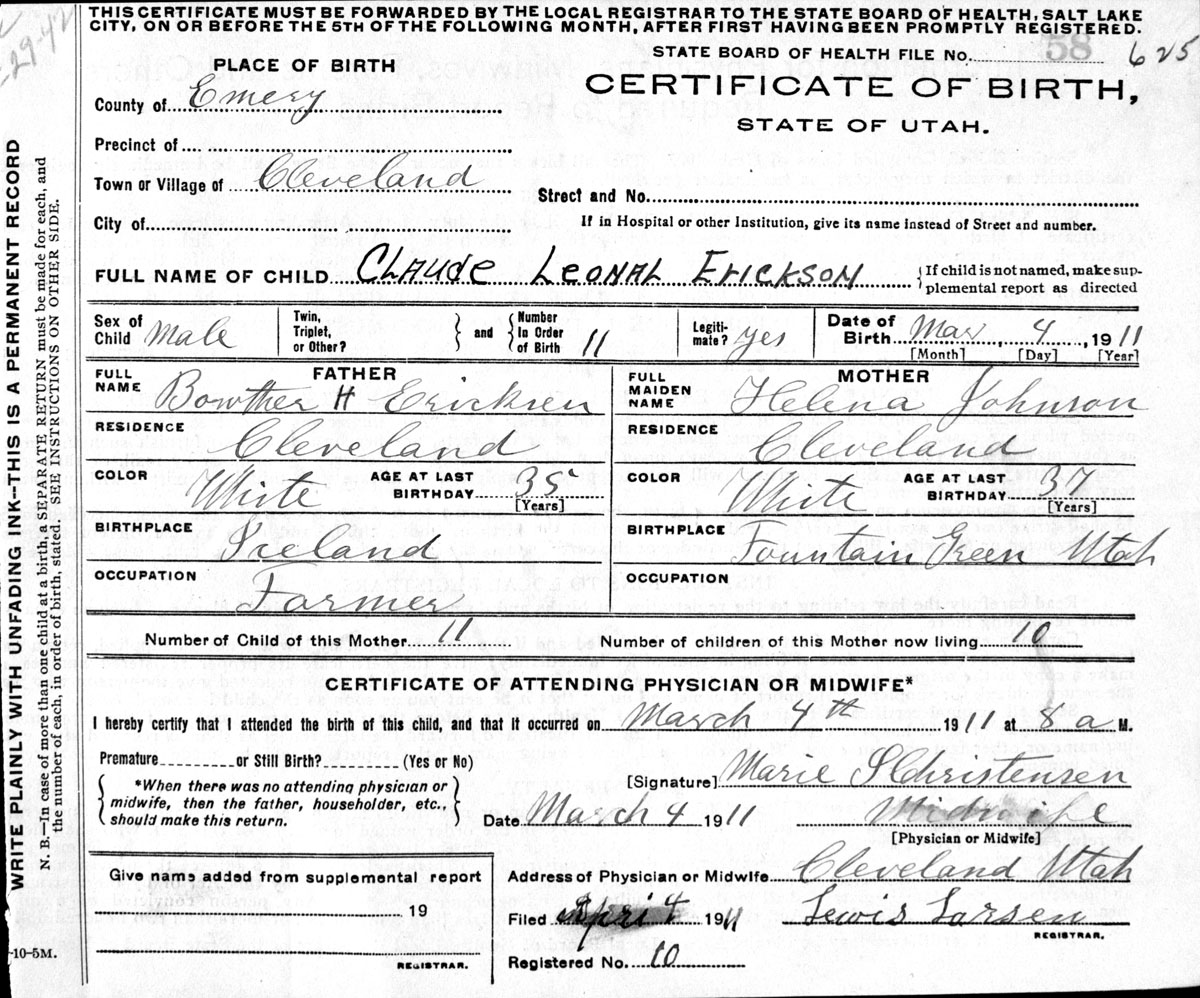 THIS CERTIFICATE MUST BE FORWARDED BY THE LOCAL REGISTRAR TO THE STATE BOARD OF HEALTH, SALT LAKE
CITY, ON OR BEFORE THE 5TH OF THE FOLLOWING MONTH, AFTER FIRST HAVING BEEN PROMPTLY REGISTERED.
-29-42
STATE BOARD OF HEALTH FILE No. 58 625
PLACE OF BIRTH
CERTIFICATE OF BIRTH,
STATE OF UTAH.
County of Emery
Precinct of
Town or Village of Cleveland
Street and No.
City of
If in Hospital or other Institution, give its name instead of Street and number.
FULL NAME OF CHILD CLAUDE LEONAL ERICKSON {If child is not named, make sup-
plemental report as directed
Sex of Child Male Twin, Triplet, or Other? } and { Number In Order of Birth 11 Legiti-mate? yes Date of Birth Mar, 4, 1911
[Month] [Day] [Year]
FATHER
FULL NAME Bowther H Ericksen
MOTHER
FULL MAIDEN NAME Helena Johnson
RESIDENCE Cleveland
RESIDENCE Cleveland
COLOR White AGE AT LAST BIRTHDAY 35 [Years]
COLOR White AGE AT LAST BIRTHDAY 37 [Years]
BIRTHPLACE Iceland
BIRTHPLACE Fountain Green Utah
OCCUPATION Farmer
OCCUPATION
Number of Child of this Mother 11 Number of children of this Mother now living 10
CERTIFICATE OF ATTENDING PHYSICIAN OR MIDWIFE*
I hereby certify that I attended the birth of this child, and that it occurred on March 4th 1911 at 8 a M.
Premature or Still Birth? (Yes or No)
{*When there was no attending physician or
midwife, then the father, householder, etc.,
should make this return.}
[Signature] Marie S Christensen
Date March 4 1911 Midwife
[Physician or Midwife]
Give name added from supplemental report
19
REGISTRAR.
Address of Physician or Midwife Cleveland Utah
Filed April 4 1911 Lewis Larsen
REGISTRAR.
Registered No. 10
-10-5M.
WRITE PLAINLY WITH UNFADING INK--THIS IS A PERMANENT RECORD
N. B.—In case of more than one child at a birth, a SEPARATE RETURN must be made for each, and
the number of each, in order of birth, stated. SEE INSTRUCTIONS ON OTHER SIDE.